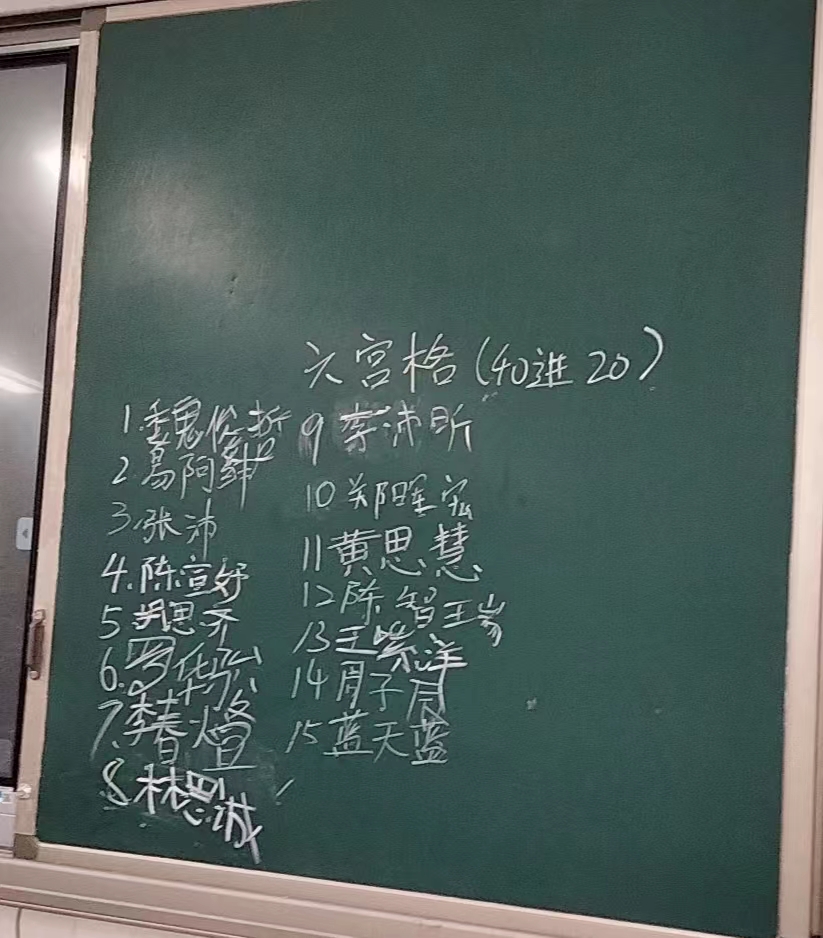 六宫格(40进20)
1.魏俊哲
2.葛阿
3.张沛
4.陈宣妤
5.胡思齐
6.罗华弘
7.李春煊
8.林思诚
9 李沛昕
10 郑晖宏
11 黄思慧
12 陈智
13 王紫洋
14 周子月
15 蓝天蓝